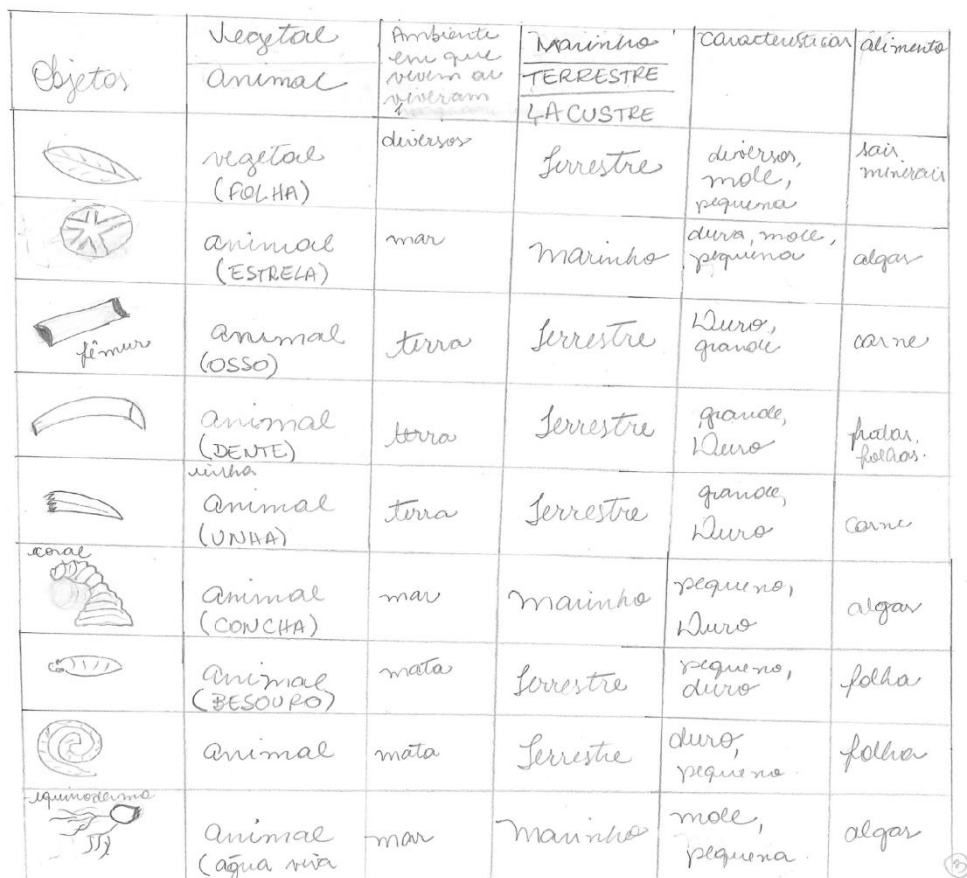 Objetos
Vegetal
animal
Ambiente
em que
vivem ou
viveram
Marinho
TERRESTRE
LACUSTRE
características
alimento
vegetal
(FOLHA)
diversos
Terrestre
diversos,
mole,
pequena
sais
minerais
animal
(ESTRELA)
mar
marinho
dura, mole,
pequena
algas
fêmur
animal
(OSSO)
terra
Terrestre
Duro,
grande
carne
animal
(DENTE)
terra
Terrestre
grande,
Duro
frutas,
folhas.
unha
animal
(UNHA)
terra
Terrestre
grande,
Duro
carne
coral
animal
(CONCHA)
mar
marinho
pequeno,
Duro
algas
animal
(BESOURO)
mata
Terrestre
pequeno,
duro
folha
animal
mata
Terrestre
duro,
pequeno.
folha
equinoderma
animal
(água viva
mar
marinho
mole,
pequena.
algas
3